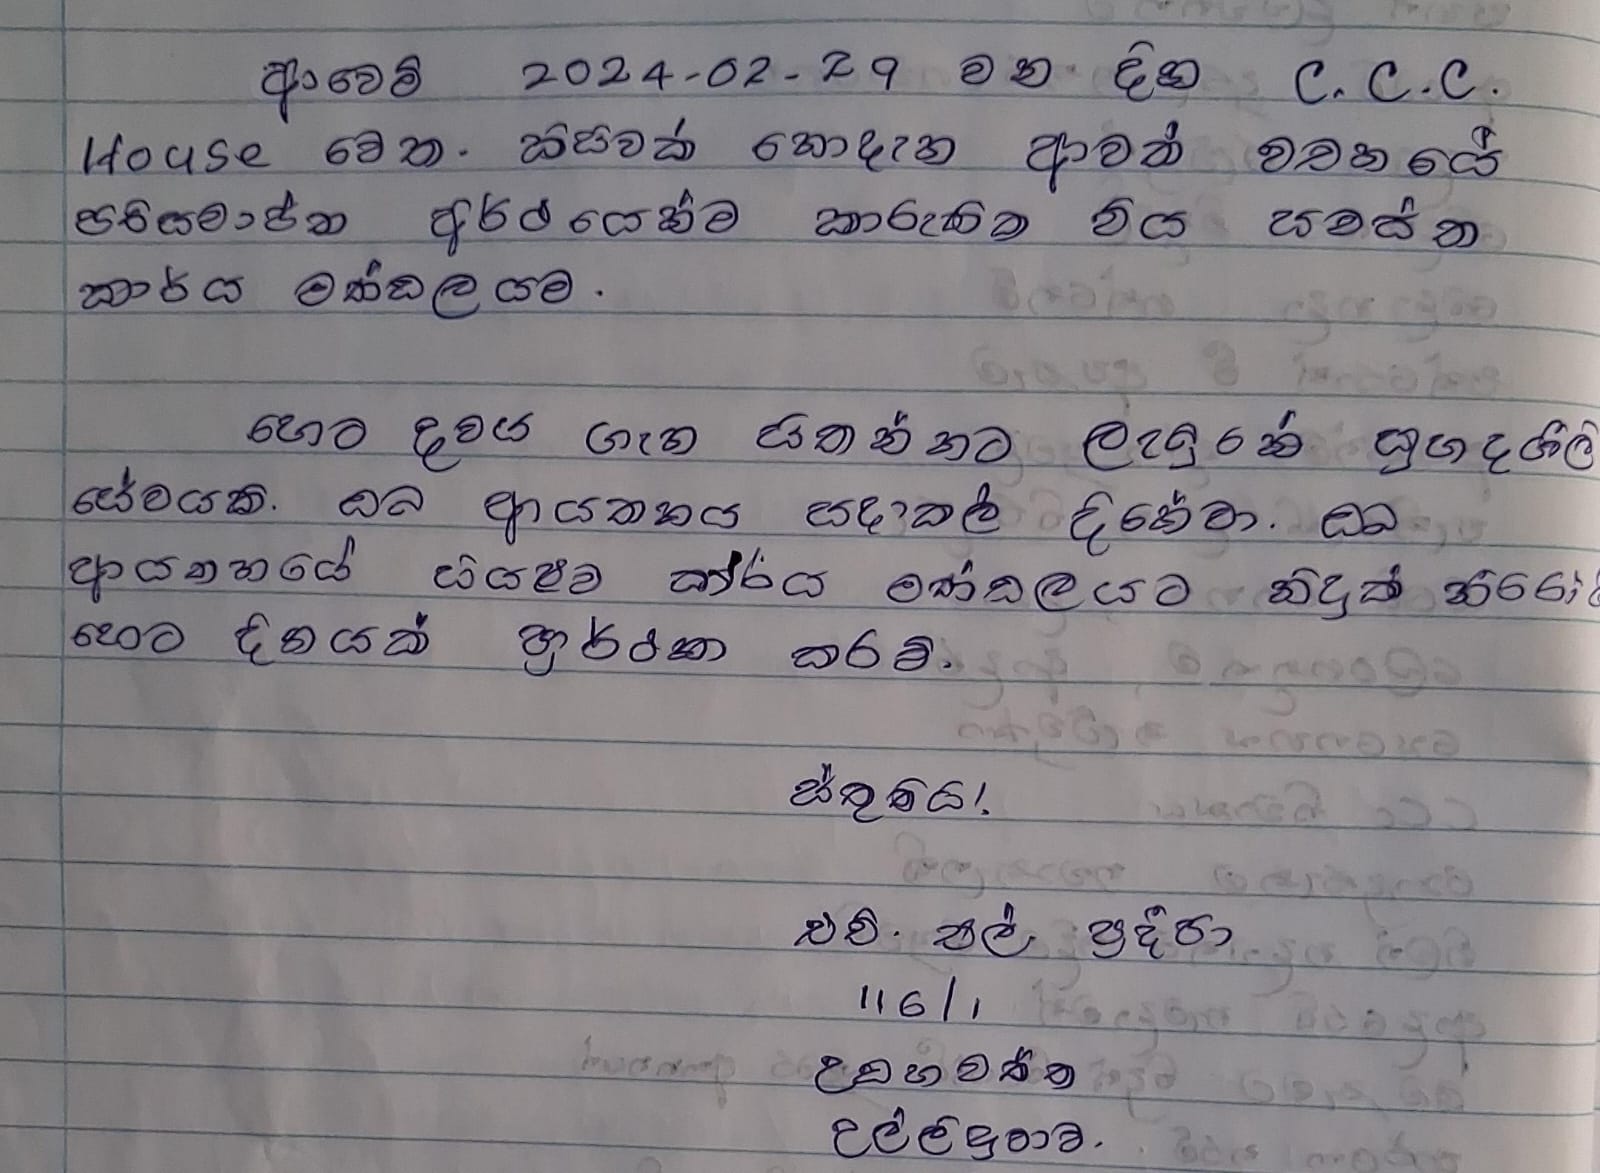 ආවෙමි 2024-02-29 වන දින C.C.C.
House වෙත. කිසිවක් නොදැන ආවත් වචනයේ
පරිසමාප්ත අර්ථයෙන්ම කාරුණික විය සමස්ත
කාර්ය මණ්ඩලයම.
හෙට දවස ගැන සිතන්නට ලැබුරන් සුහදශීලි
සේවයකි. ඔබ ආයතනය සදාකල් දිනේවා. ඔබ
ආයතනයේ සියළුව කාර්ය මණ්ඩලයට නිදුක් නිරෝගි
හෙට දිනයක් ප්‍රාර්ථනා කරමි.
ස්තූතියි!
එච්. එල්. ප්‍රදීපා
116/1
උඩහවත්ත
උල්ලිදුපාව.